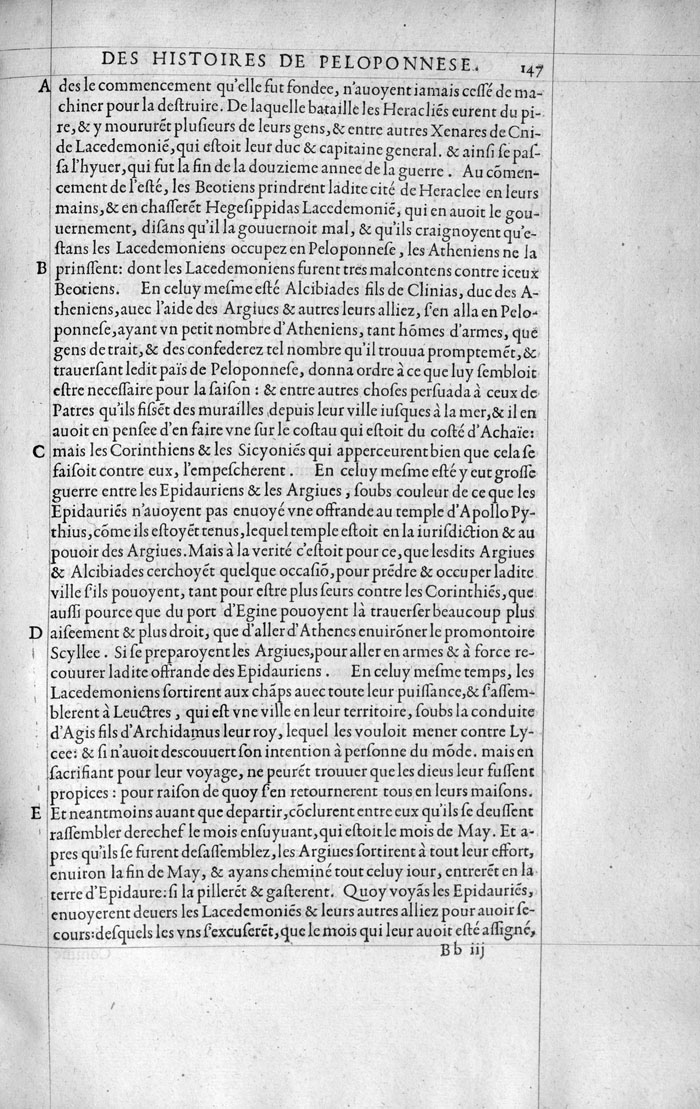 DES HISTOIRES DE PELOPONNESE. 147
A des le commencement qu'elle fut fondee, n'auoyent iamais ceſſé de ma-
chiner pour la deſtruire. De laquelle bataille les Heracliés eurent du pi-
re, & y moururēt pluſieurs de leurs gens, & entre autres Xenares de Cni-
de Lacedemonié, qui eſtoit leur duc & capitaine general. & ainſi ſe paſ-
ſa l'hyuer, qui fut la fin de la douzieme annee de la guerre. Au cōmen-
cement de l'eſté, les Beotiens prindrent ladite cité de Heraclee en leurs
mains, & en chaſſerēt Hegeſippidas Lacedemonié, qui en auoit le gou-
uernement, diſans qu'il la gouuernoit mal, & qu'ils craignoyent qu'e-
ſtans les Lacedemoniens occupez en Peloponneſe, les Atheniens ne la
B prinſſent: dont les Lacedemoniens furent tres malcontens contre iceux
Beotiens. En celuy meſme eſté Alcibiades fils de Clinias, duc des A-
theniens, auec l'aide des Argiues & autres leurs alliez, ſ'en alla en Pelo-
ponneſe, ayant vn petit nombre d'Atheniens, tant hōmes d'armes, que
gens de trait, & des confederez tel nombre qu'il trouua promptemēt, &
trauerſant ledit païs de Peloponneſe, donna ordre à ce que luy ſembloit
eſtre neceſſaire pour la ſaiſon : & entre autres choſes perſuada à ceux de
Patres qu'ils fiſſēt des murailles depuis leur ville iuſques à la mer, & il en
auoit en penſee d'en faire vne ſur le coſtau qui eſtoit du coſté d'Achaïe:
C mais les Corinthiens & les Sicyoniés qui apperceurent bien que cela ſe
faiſoit contre eux, l'empeſcherent. En celuy meſme eſté y eut groſſe
guerre entre les Epidauriens & les Argiues, ſoubs couleur de ce que les
Epidauriés n'auoyent pas enuoyé vne offrande au temple d'Apollo Py-
thius, cōme ils eſtoyēt tenus, lequel temple eſtoit en la iuriſdiction & au
pouoir des Argiues. Mais à la verité c'eſtoit pour ce, que leſdits Argiues
& Alcibiades cerchoyēt quelque occaſiō, pour prēdre & occuper ladite
ville ſ'ils pouoyent, tant pour eſtre plus ſeurs contre les Corinthiés, que
auſſi pource que du port d'Egine pouoyent là trauerſer beaucoup plus
D aiſeement & plus droit, que d'aller d'Athenes enuirōner le promontoire
Scyllee. Si ſe preparoyent les Argiues, pour aller en armes & à force re-
couurer ladite offrande des Epidauriens. En celuy meſme temps, les
Lacedemoniens ſortirent aux chāps auec toute leur puiſſance, & ſ'aſſem-
blerent à Leuctres, qui eſt vne ville en leur territoire, ſoubs la conduite
d'Agis fils d'Archidamus leur roy, lequel les vouloit mener contre Ly-
cee: & ſi n'auoit deſcouuert ſon intention à perſonne du mōde. mais en
ſacrifiant pour leur voyage, ne peurēt trouuer que les dieus leur fuſſent
propices : pour raiſon de quoy ſ'en retournerent tous en leurs maiſons.
E Et neantmoins auant que departir, cōclurent entre eux qu'ils ſe deuſſent
raſſembler derechef le mois enſuyuant, qui eſtoit le mois de May. Et a-
pres qu'ils ſe furent deſaſſemblez, les Argiues ſortirent à tout leur effort,
enuiron la fin de May, & ayans cheminé tout celuy iour, entrerēt en la
terre d'Epidaure: ſi la pillerēt & gaſterent. Quoy voyās les Epidauriés,
enuoyerent deuers les Lacedemoniés & leurs autres alliez pour auoir ſe-
cours: deſquels les vns ſ'excuſerēt, que le mois qui leur auoit eſté aſſigné,
Bb iij